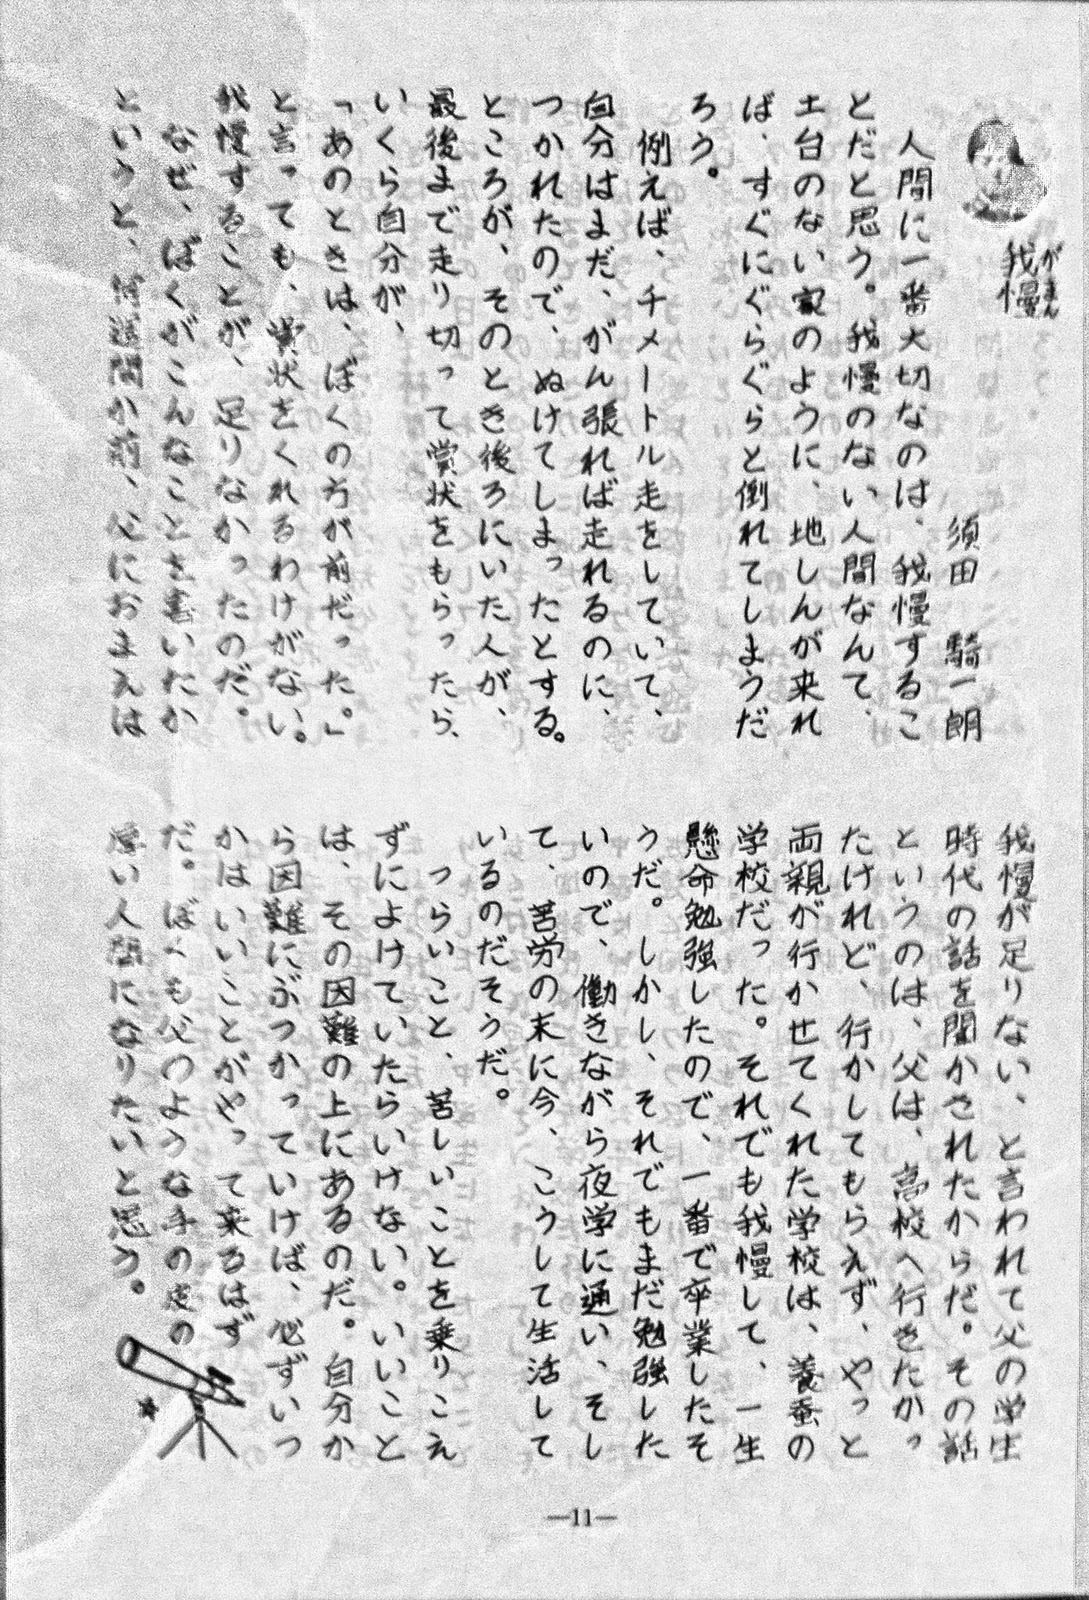 我慢
がまん
須田 騎一朗
人間に一番大切なのは、我慢するこ
とだと思う。我慢のない人間なんて、
土台のない家のように、地しんが来れ
ば、すぐにぐらぐらと倒れてしまうだ
ろう。
例えば、千メートル走をしていて、
自分はまだ、がん張れば走れるのに、
つかれたので、ぬけてしまったとする。
ところが、そのとき後ろにいた人が、
最後まで走り切って賞状をもらったら、
いくら自分が、
「あのときは、ぼくの方が前だった。」
と言っても、賞状をくれるわけがない。
我慢することが、足りなかったのだ。
なぜ、ぼくがこんなことを書いたか
というと、週間か前、父におまえは
我慢が足りない、と言われて父の学生
時代の話を聞かされたからだ。その話
というのは、父は、高校へ行きたかっ
たけれど、行かしてもらえず、やっと
両親が行かせてくれた学校は、養蚕の
学校だった。それでも我慢して、一生
懸命勉強したので、一番で卒業したそ
うだ。しかし、それでもまだ勉強した
いので、働きながら夜学に通い、そし
て、苦労の末に今、こうして生活して
いるのだそうだ。
つらいこと、苦しいことを乗りこえ
ずによけていたらいけない。いいこと
は、その困難の上にあるのだ。自分か
ら困難にぶつかっていけば、必ずいつ
かはいいことがやって来るはず
だ。ぼくも父のような手の皮の
厚い人間になりたいと思う。
—11—